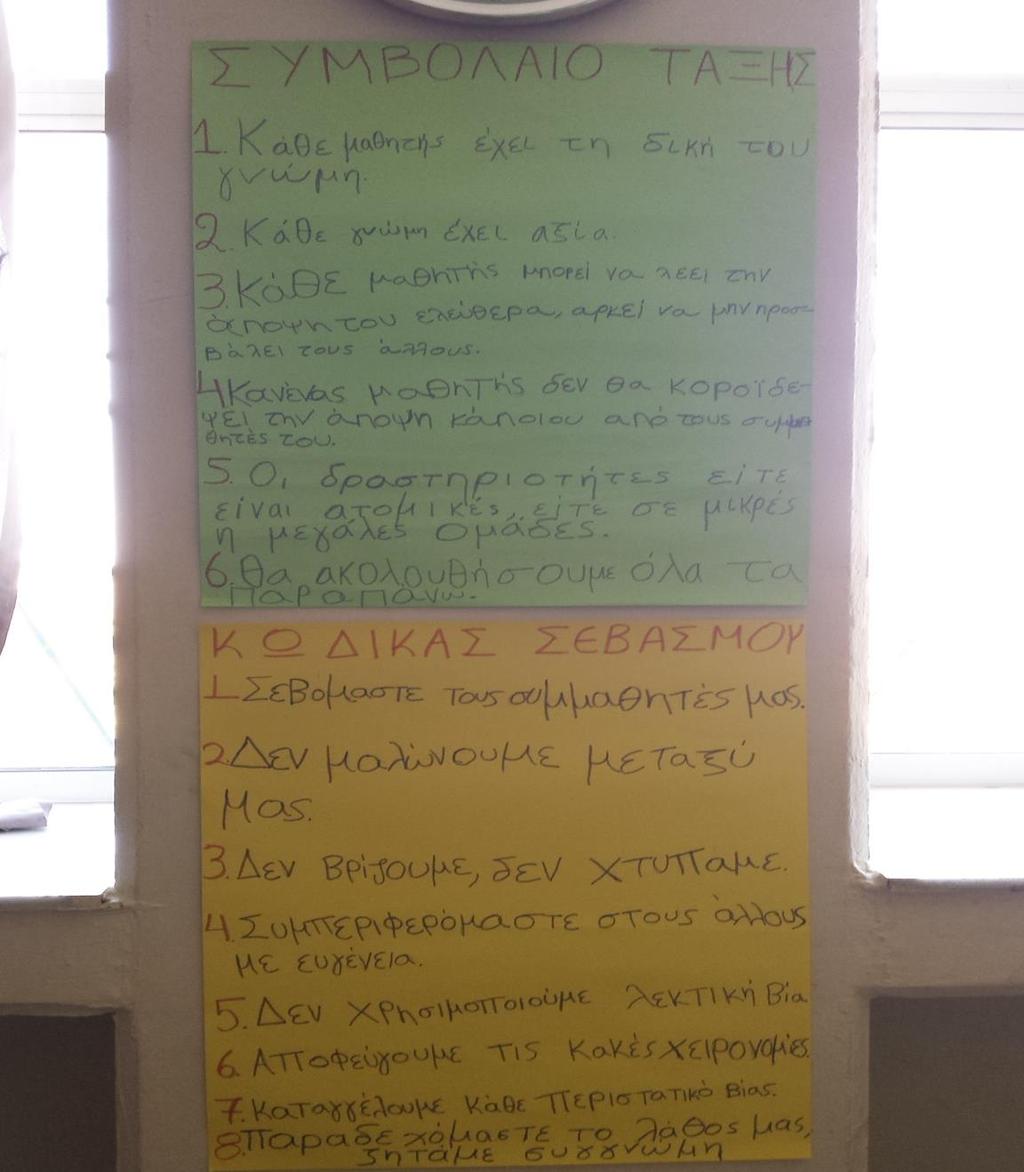 ΣΥΜΒΟΛΑΙΟ ΤΑΞΗΣ
1. Κάθε μαθητής έχει τη δική του
γνώμη.
2. Κάθε γνώμη έχει αξία.
3. Κάθε μαθητής μπορεί να λέει την
άποψη του ελεύθερα, αρκεί να μην προσ-
βάλει τους άλλους.
4 Κανένας μαθητής δεν θα κοροϊδέ-
ψει την άποψη κάποιου από τους συμμα
θητές του.
5. Οι δραστηριοτήτες είτε
είναι ατομικές, είτε σε μικρές
ή μεγάλες ομάδες.
6. Θα ακολουθήσουμε όλα τα
παραπάνω.
ΚΩΔΙΚΑΣ ΣΕΒΑΣΜΟΥ
1 Σεβόμαστε τους συμμαθητές μας.
2. Δεν μαλώνουμε μεταξύ
μας.
3. Δεν βρίζουμε, δεν χτυπάμε.
4. Συμπεριφερόμαστε στους άλλους
με ευγένεια.
5. Δεν χρησιμοποιούμε λεκτική βία
6. Αποφεύγουμε τις κακές χειρονομίες.
7. Καταγγέλουμε κάθε περιστατικό βίας.
8. Παραδεχόμαστε το λάθος μας,
ζητάμε συγγνώμη